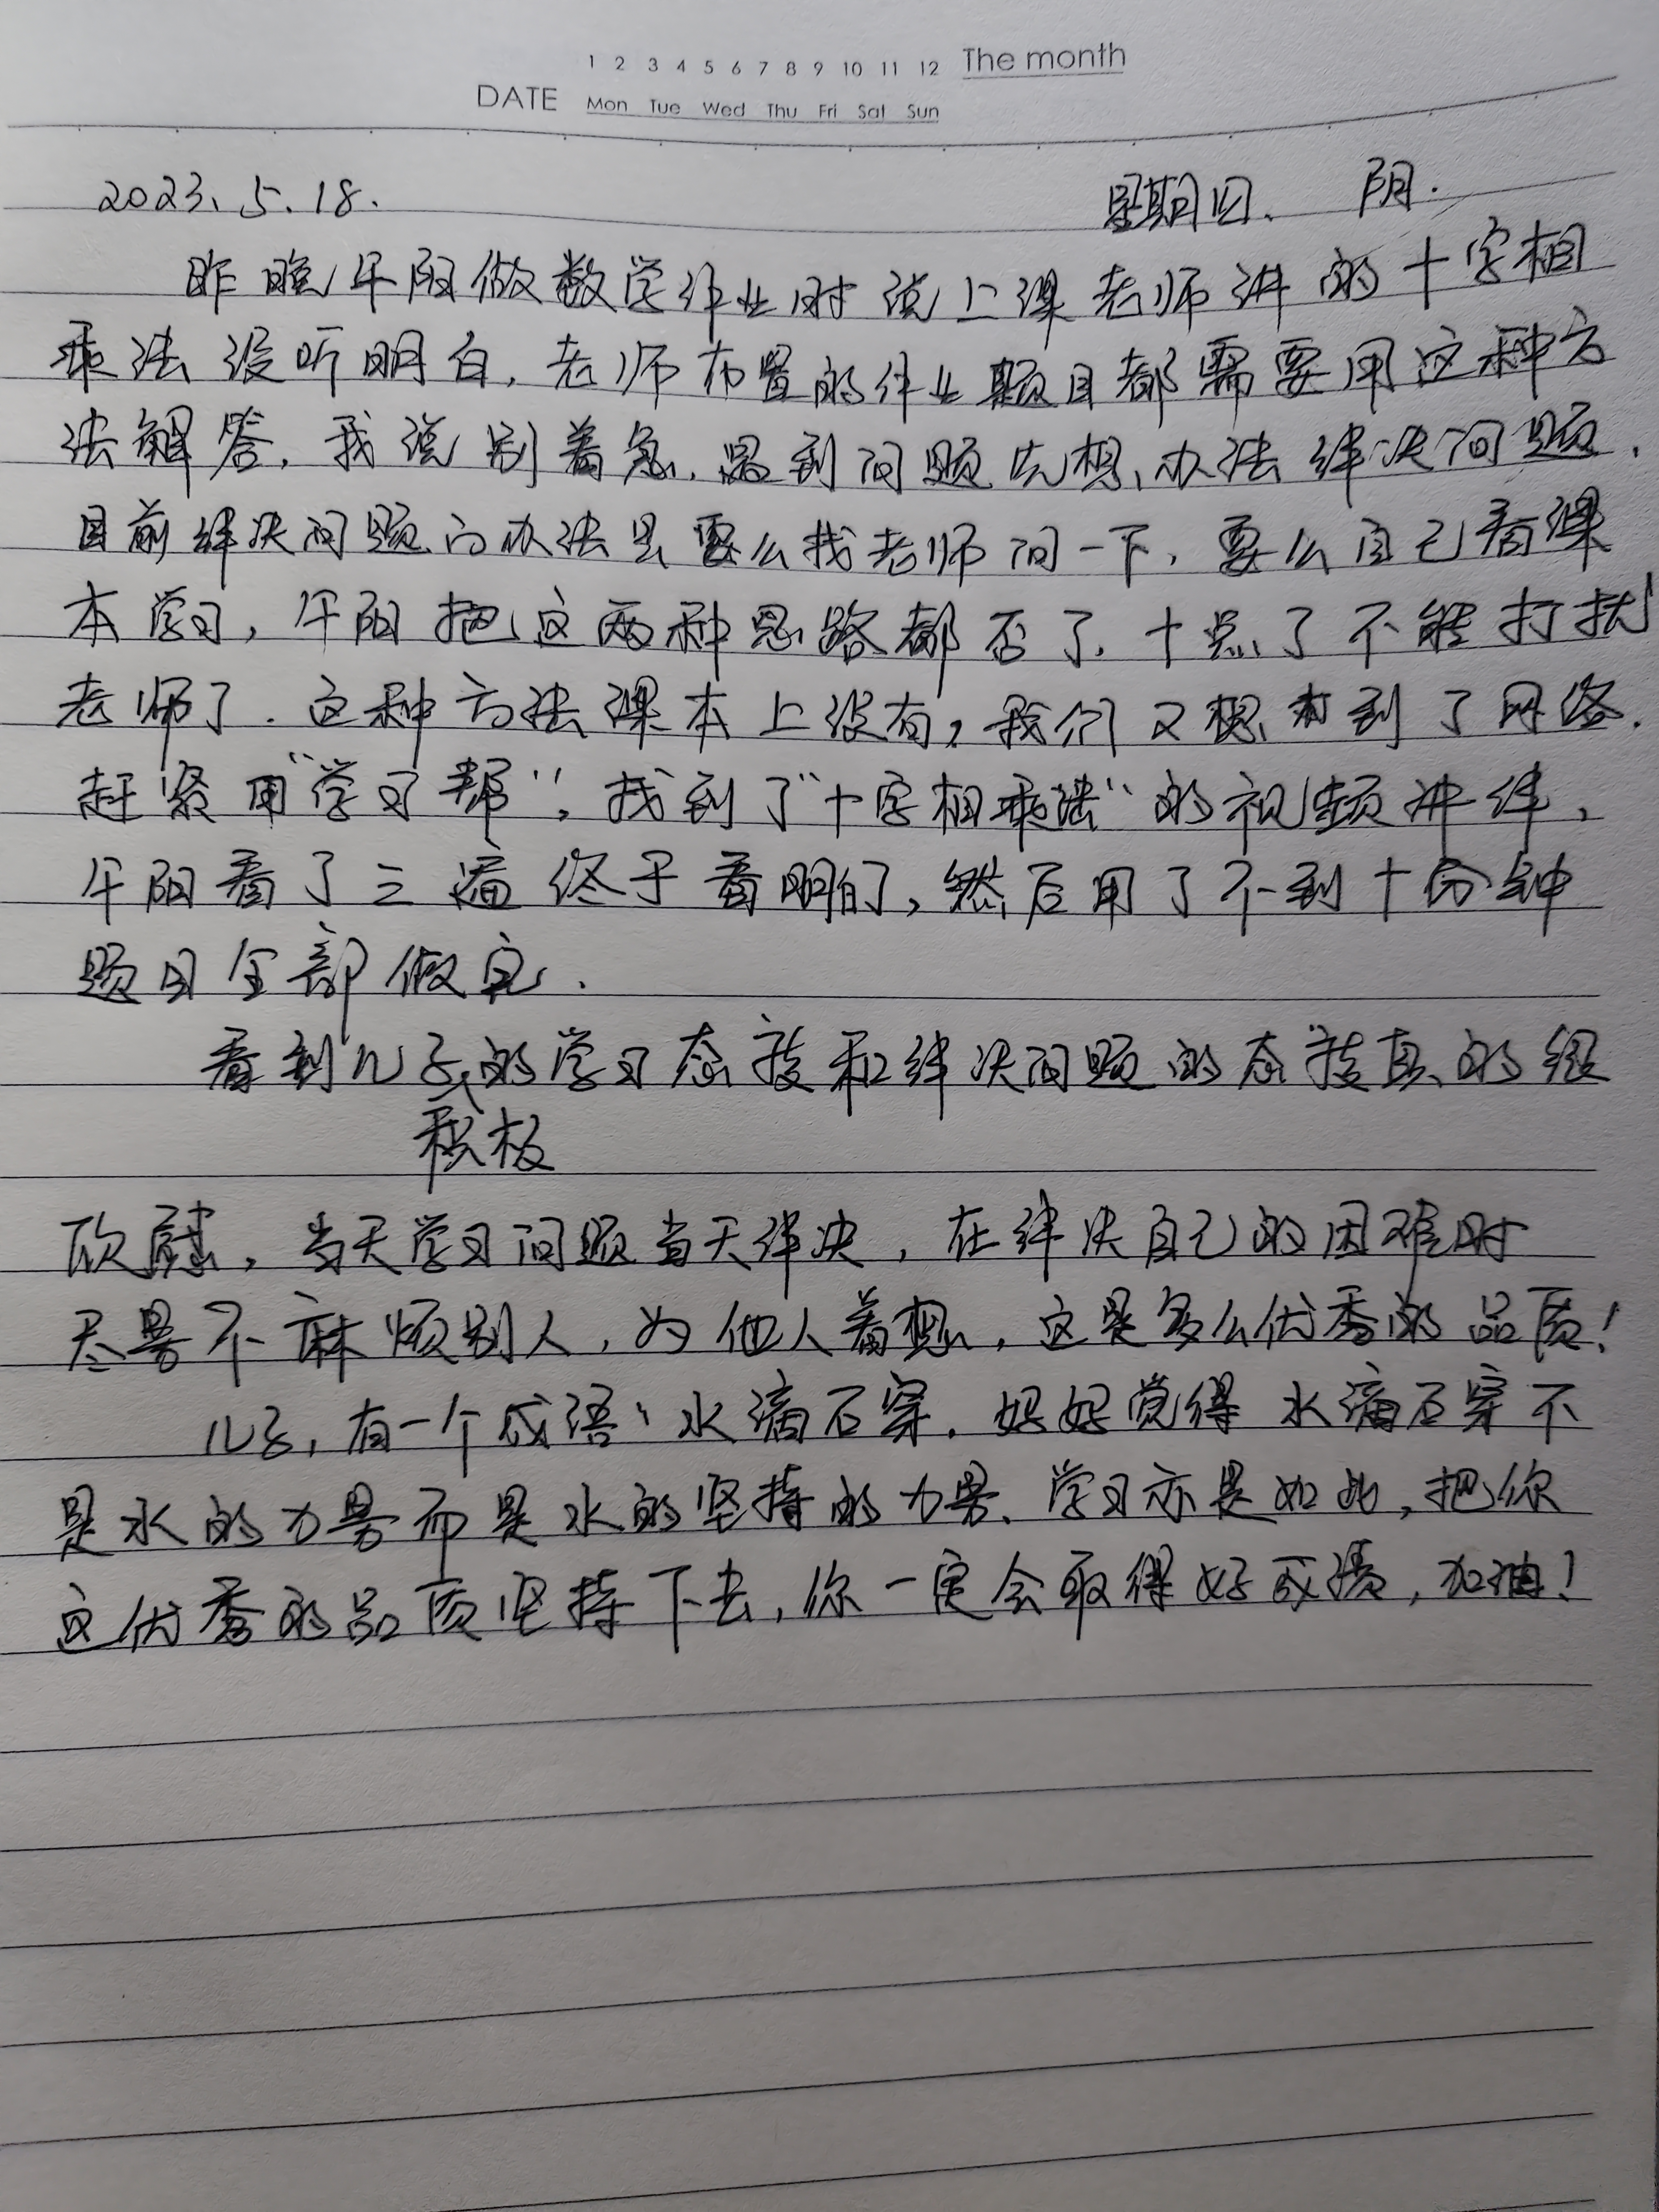 1 2 3 4 5 6 7 8 9 10 11 12 The month
DATE Mon Tue Wed Thu Fri Sat Sun
2023.5.18. 星期四. 阴.
昨晚午阳做数学作业时说上课老师讲的十字相
乘法没听明白,老师布置的作业题目都需要用这种方
法解答,我说别着急.遇到问题先想办法解决问题.
目前解决问题的办法是要么找老师问一下,要么自己看课
本学习,午阳把这两种思路都否了.十点了不能打扰
老师了.这种方法课本上没有,我们又想到了网络.
赶紧用“学习帮”,找到了“十字相乘法”的视频讲解,
午阳看了三遍终于看明白了,然后用了不到十分钟
题目全部做完.
看到儿子的学习态度和解决问题的态度真的很
积极
欣慰,当天学习问题当天解决,在解决自己的困难时
尽量不麻烦别人,为他人着想,这是多么优秀的品质!
儿子,有一个成语:水滴石穿.妈妈觉得水滴石穿不
是水的力量而是水的坚持的力量.学习亦是如此,把你
这优秀的品质坚持下去,你一定会取得好成绩,加油!